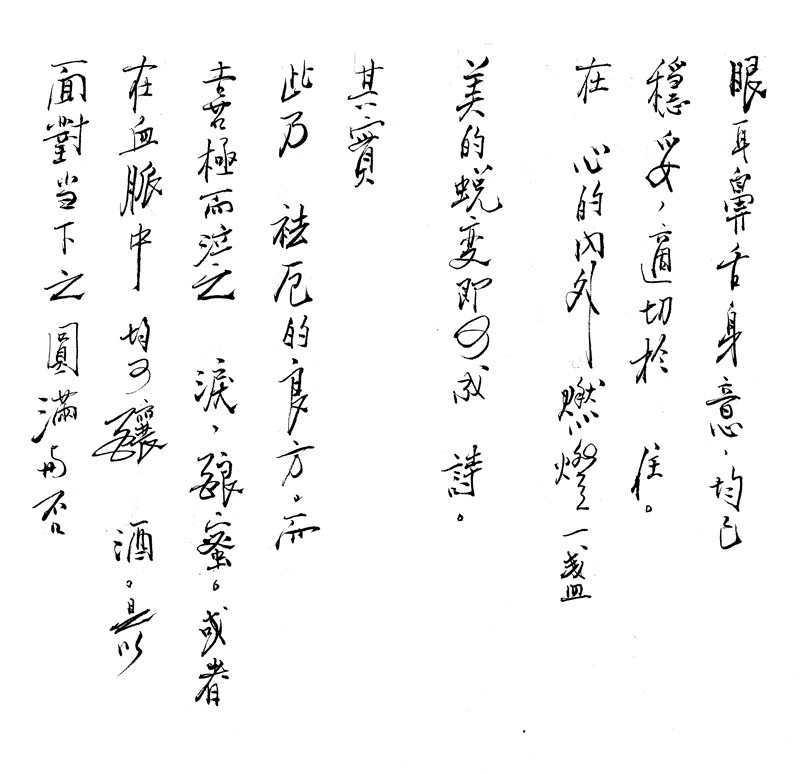 眼耳鼻舌身意，均已
穩妥，適切於　住。
在　心的內外　燃燈一盞
美的蛻变即可成　詩。
其實
此乃　祛厄的良方。而
喜極而泣之　淚，釀蜜。或者
在血脈中　均可釀　酒。是以
面對当下之　圓滿與否